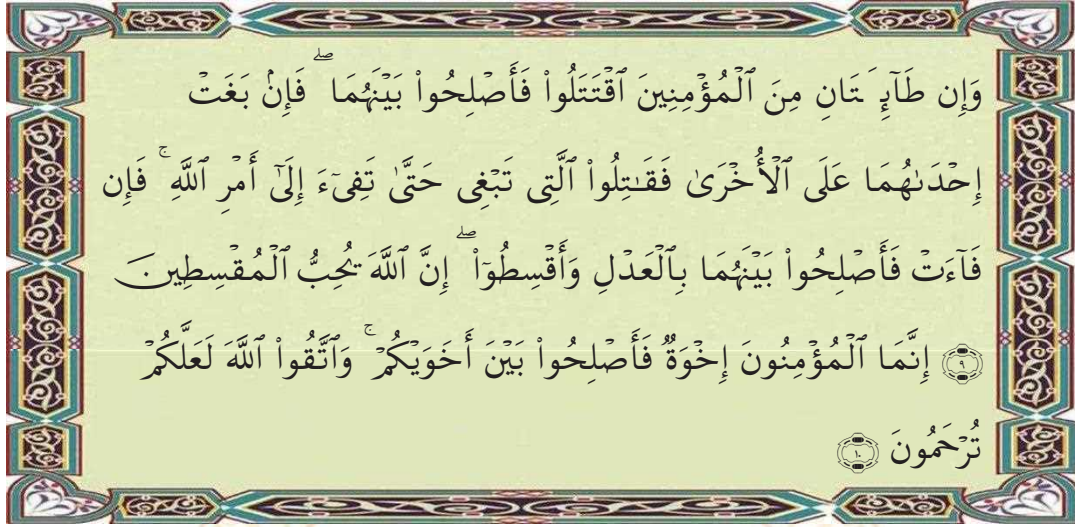 وَإِن طَآئِفَتَانِ مِنَ ٱلْمُؤْمِنِينَ ٱقْتَتَلُوا۟ فَأَصْلِحُوا۟ بَيْنَهُمَا ۖ فَإِنۢ بَغَتْ
إِحْدَىٰهُمَا عَلَى ٱلْأُخْرَىٰ فَقَـٰتِلُوا۟ ٱلَّتِى تَبْغِى حَتَّىٰ تَفِىٓءَ إِلَىٰٓ أَمْرِ ٱللَّهِ ۚ فَإِن
فَآءَتْ فَأَصْلِحُوا۟ بَيْنَهُمَا بِٱلْعَدْلِ وَأَقْسِطُوٓا۟ ۖ إِنَّ ٱللَّهَ يُحِبُّ ٱلْمُقْسِطِينَ
۝٩ إِنَّمَا ٱلْمُؤْمِنُونَ إِخْوَةٌ فَأَصْلِحُوا۟ بَيْنَ أَخَوَيْكُمْ ۚ وَٱتَّقُوا۟ ٱللَّهَ لَعَلَّكُمْ
تُرْحَمُونَ ۝١٠